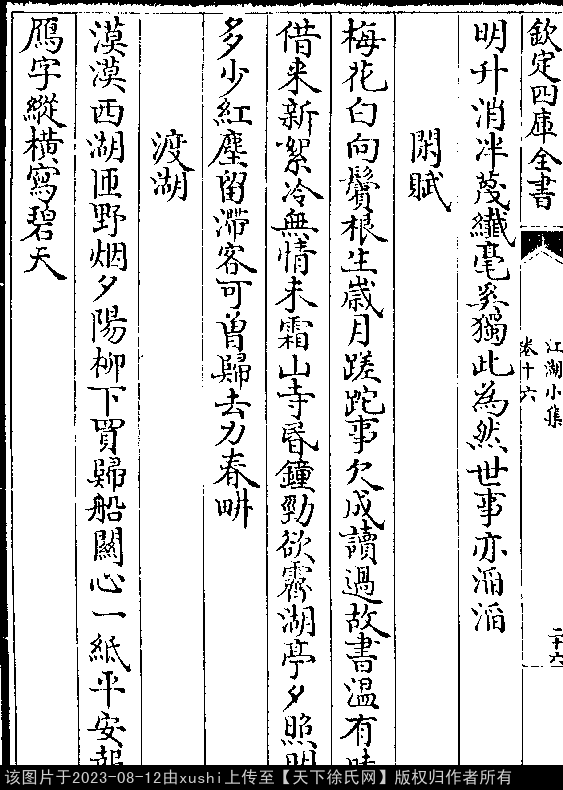 欽定四庫全書
江湖小集
卷十六
二十六
明升消冸蔑纖毫奚獨此為然世事亦滔滔
閑賦
梅花白向鬢根生歲月蹉跎事欠成讀過故書温有
借来新絮冷無情未霜山寺昏鐘勁欲霽湖亭夕照明
多少紅塵留滯客可曾歸去力春畊
渡湖
漠漠西湖匝野烟夕陽柳下買歸船關心一紙平安報
鴈字縱橫寫碧天
该图片于2023-08-12由xushi上传至【天下徐氏网】版权归作者所有